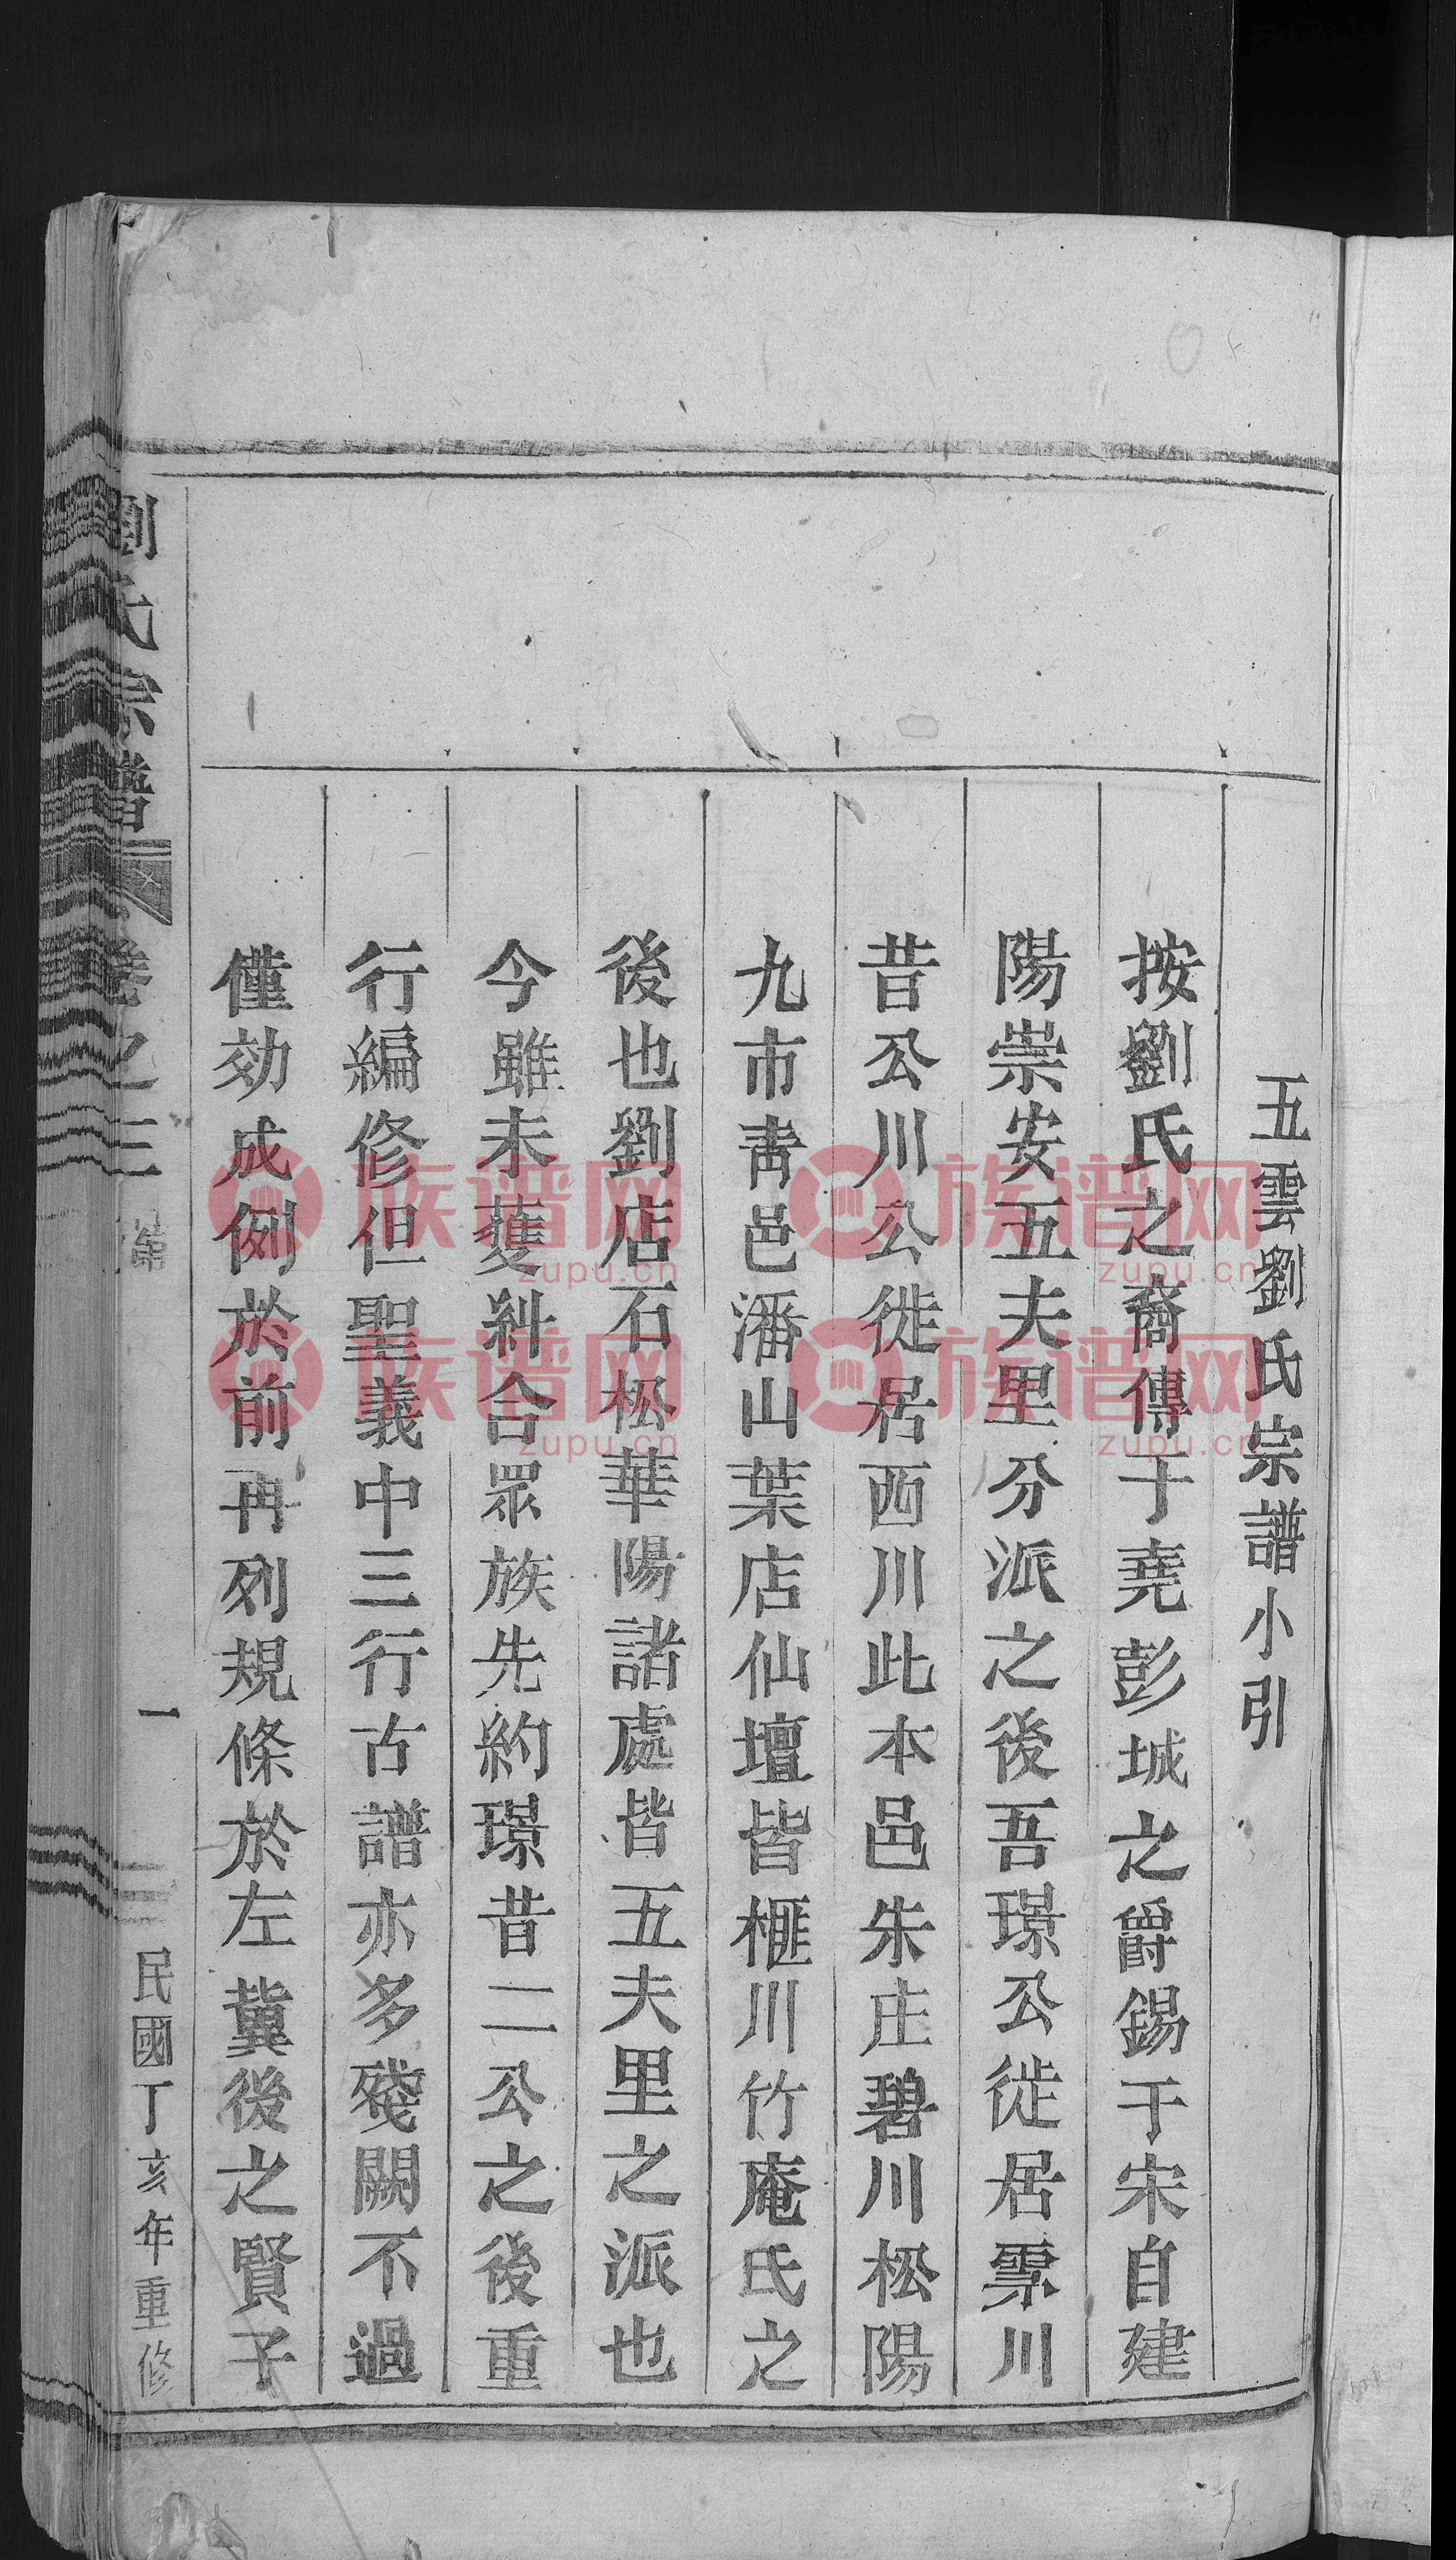 五雲劉氏宗譜小引
按劉氏之裔傳于堯彭城之爵錫于宋自建
陽崇安五夫里分派之後吾璟公徙居雲川
昔公川公徙居西川此本邑朱庄碧川松陽
九市靑邑潘山葉店仙壇皆榧川竹庵氏之
後也劉店石松華陽諸處皆五夫里之派也
今雖未蒦糾合眾族先約璟昔二公之後重
行編修但聖義中三行古譜亦多殘闕不過
僅効成例於前再列規條於左冀後之賢子
劉氏宗譜 卷之三 一 民國丁亥年重修
族谱网
zupu.cn
族谱网
zupu.cn
族谱网
zupu.cn
族谱网
zupu.cn